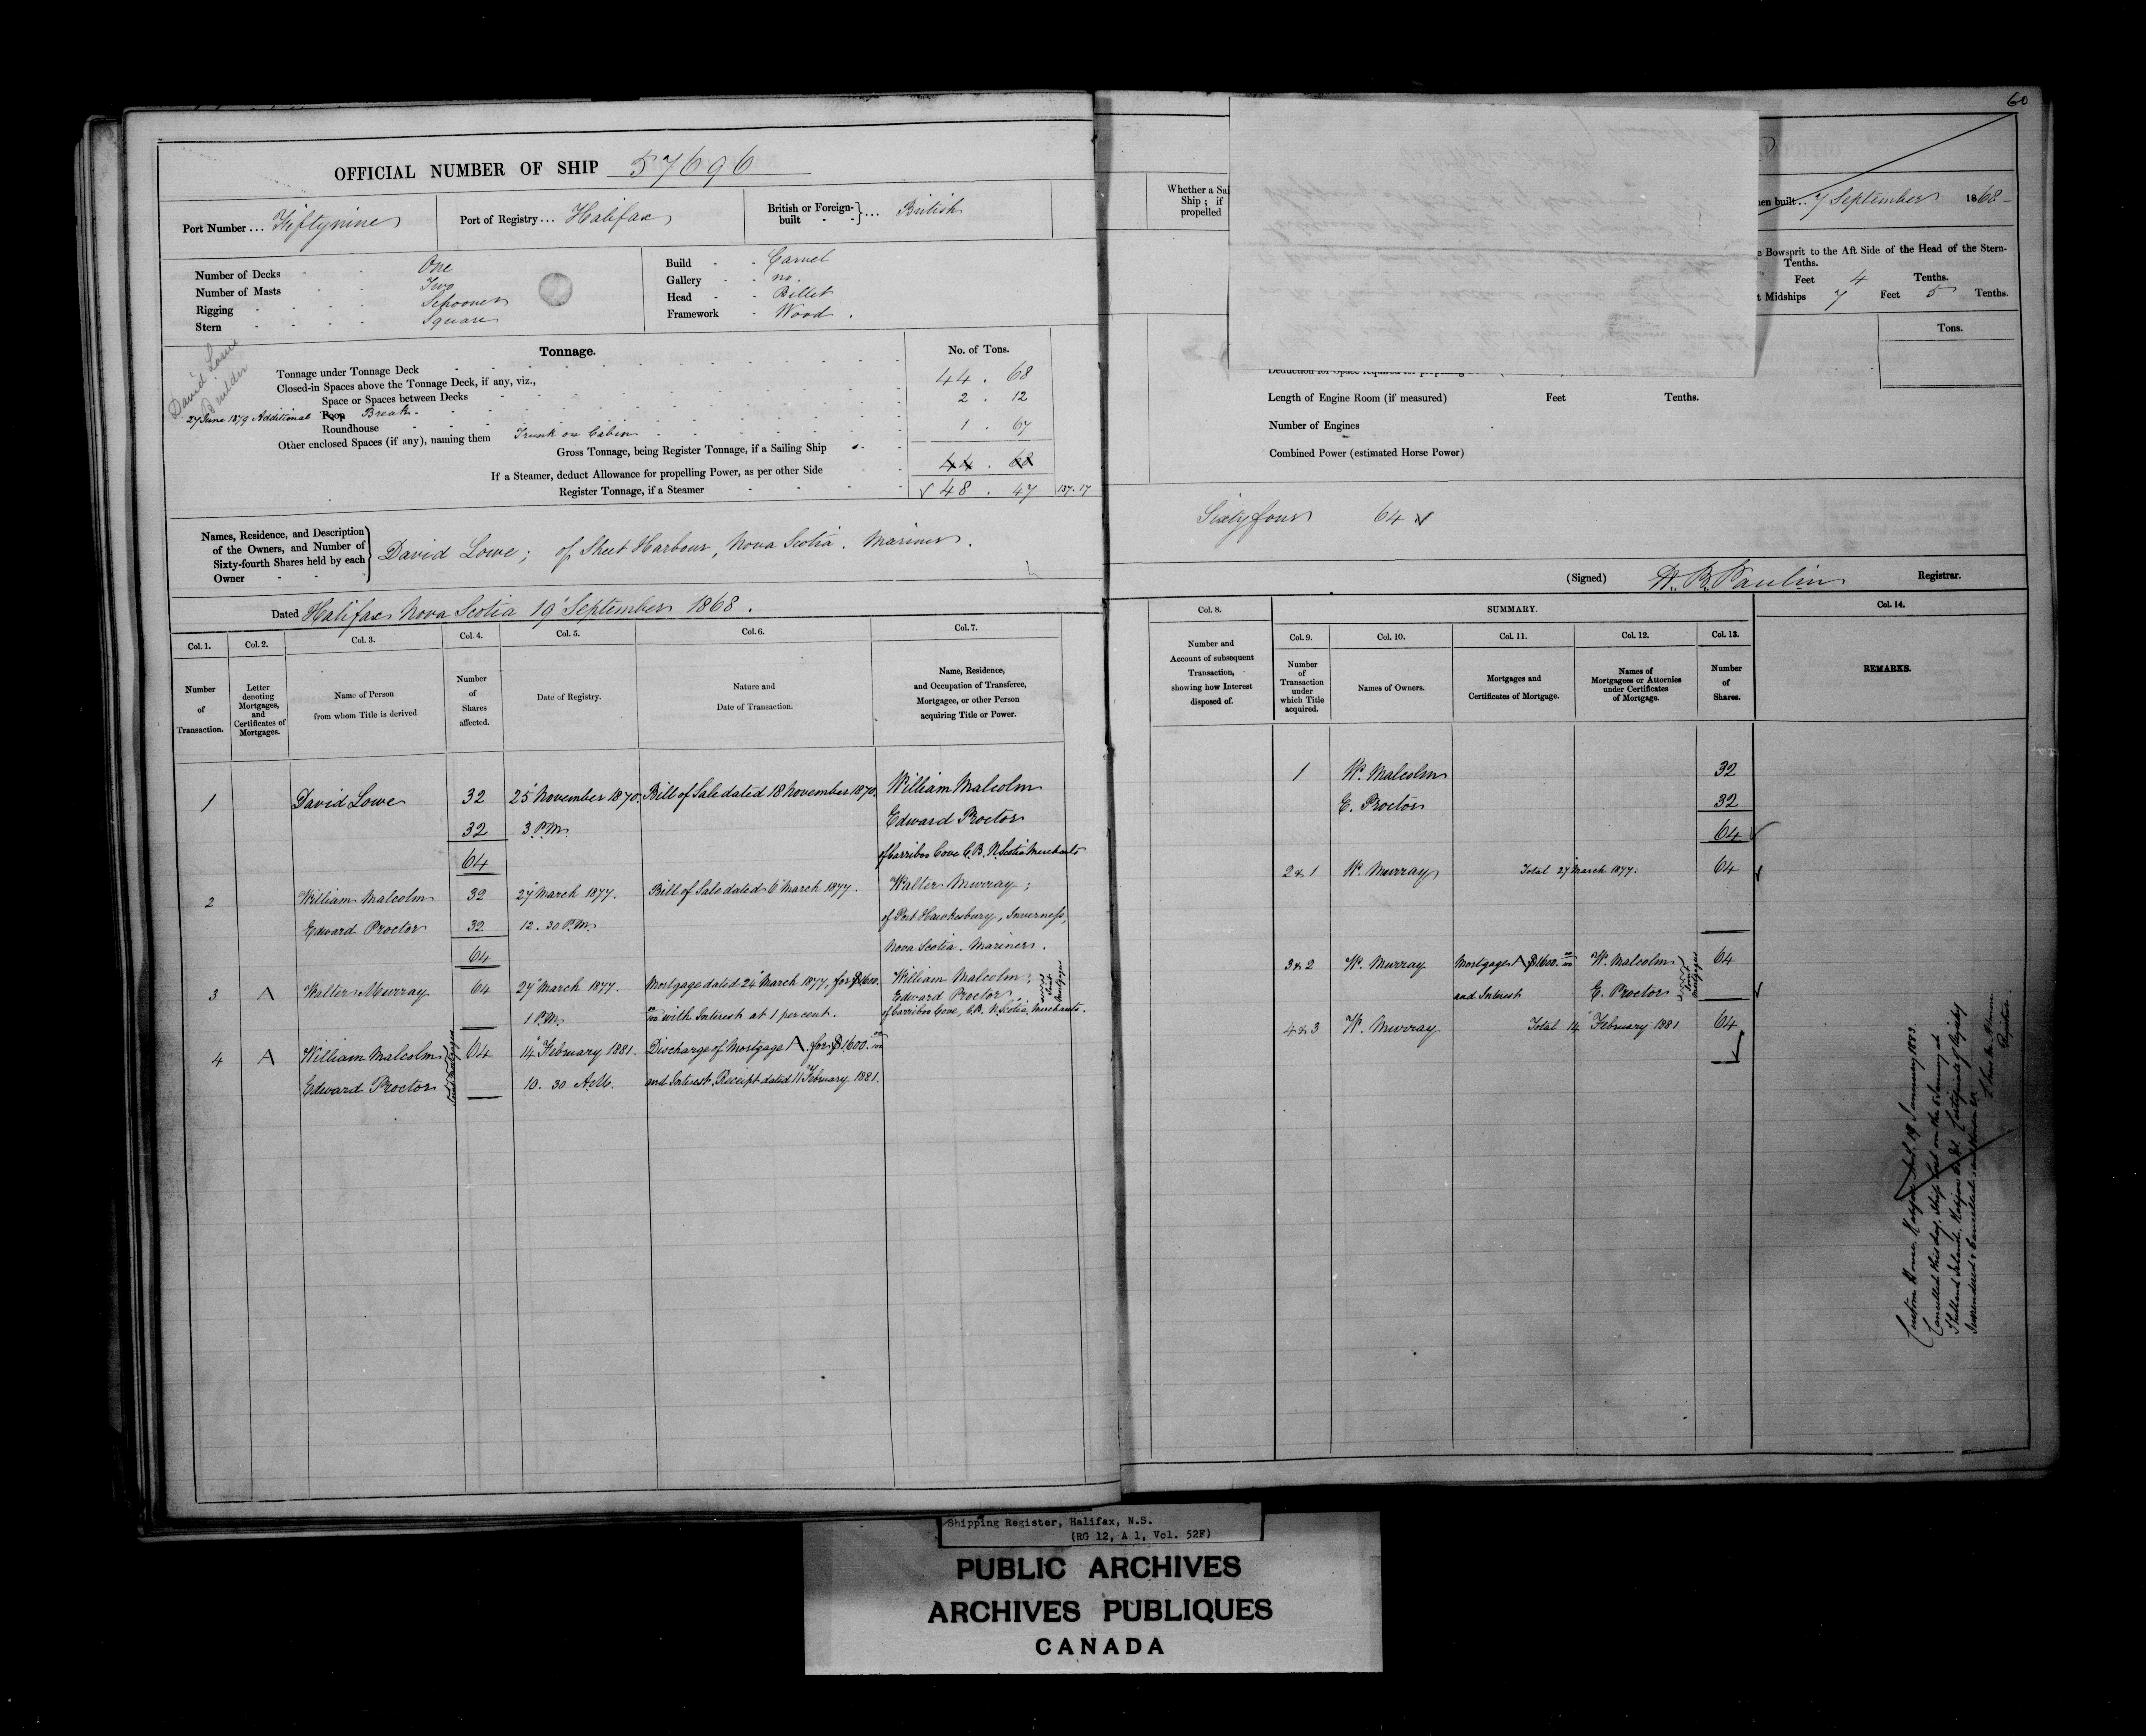 60
OFFICIAL NUMBER OF SHIP 57696
Port Number ... Fiftynine
Port of Registry ... Halifax
British or Foreign-built - - } ... British
Number of Decks - - One
Number of Masts - - Two
Rigging - - - - Schooner
Stern - - - - Square
Build - - Carvel
Gallery - - no.
Head - - Billet
Framework - Wood.
David Lowe
Builder
Tonnage.
No. of Tons.
Tonnage under Tonnage Deck 44 . 68
Closed-in Spaces above the Tonnage Deck, if any, viz.,
Space or Spaces between Decks 2 . 12
27 June 1879 Additional Poop Break.
Roundhouse 1 . 67
Other enclosed Spaces (if any), naming them Trunk on Cabin
Gross Tonnage, being Register Tonnage, if a Sailing Ship 44 . 68
If a Steamer, deduct Allowance for propelling Power, as per other Side
Register Tonnage, if a Steamer 48 . 47 137.17
Names, Residence, and Description
of the Owners, and Number of
Sixty-fourth Shares held by each
Owner
David Lowe; of Sheet Harbour, Nova Scotia. Mariner.
Dated Halifax Nova Scotia 19 September 1868.
Col. 1. Col. 2. Col. 3. Col. 4. Col. 5. Col. 6. Col. 7.
Number of Transaction.
Letter denoting Mortgages, and Certificates of Mortgages.
Name of Person from whom Title is derived
Number of Shares affected.
Date of Registry.
Nature and Date of Transaction.
Name, Residence, and Occupation of Transferee, Mortgagee, or other Person acquiring Title or Power.
1 David Lowe 32 25 November 1870. Bill of Sale dated 18 November 1870. William Malcolm
32 3 P.M. Edward Proctor
64 of Carriboo Cove C.B. N. Scotia Merchants
2 William Malcolm 32 27 March 1877. Bill of Sale dated 6 March 1877. Walter Murray;
Edward Proctor 32 12.30 P.M. of Port Hawkesbury, Inverness,
64 Nova Scotia. Mariner.
3 A Walter Murray 64 27 March 1877. Mortgage dated 24 March 1877, for $1600. William Malcolm;
Edward Proctor
Joint Mortgagees
1 P.M. with Interest at 1 per cent. of Carriboo Cove, C.B. N. Scotia. Merchants.
4 A William Malcolm 64 14 February 1881. Discharge of Mortgage A. for $1600.
Edward Proctor 10. 30 A.M. and Interest. Receipt dated 11 February 1881.
Joint Mortgagees
Whether a Sai
Ship; if
propelled
en built .. 7 September 1868
e Bowsprit to the Aft Side of the Head of the Stern-
Tenths.
Feet 4 Tenths.
t Midships 7 Feet 5 Tenths.
Tons.
Length of Engine Room (if measured) Feet Tenths.
Number of Engines
Combined Power (estimated Horse Power)
Sixty four 64
(Signed) Registrar.
Col. 8. SUMMARY. Col. 14.
Col. 9. Col. 10. Col. 11. Col. 12. Col. 13.
Number and Account of subsequent Transaction, showing how Interest disposed of.
Number of Transaction under which Title acquired.
Names of Owners.
Mortgages and Certificates of Mortgage.
Names of Mortgagees or Attornies under Certificates of Mortgage.
Number of Shares.
REMARKS.
1 W. Malcolm 32
E. Proctor 32
64
2 & 1 W. Murray Total 27 March 1877. 64
3 & 2 W. Murray Mortgage A $1600. W. Malcolm 64
and Interest E. Proctor
Joint Mortgagees
4 & 3 W. Murray Total 14 February 1881 64
Custom House, Halifax N.S. 19 January 1883.
Cancelled this day. Ship lost on the
Certificate of Registry
Surrendered & Cancelled.
Registrar.
Shipping Register, Halifax, N.S.
(RG 12, A 1, Vol. 52F)
PUBLIC ARCHIVES
ARCHIVES PUBLIQUES
CANADA